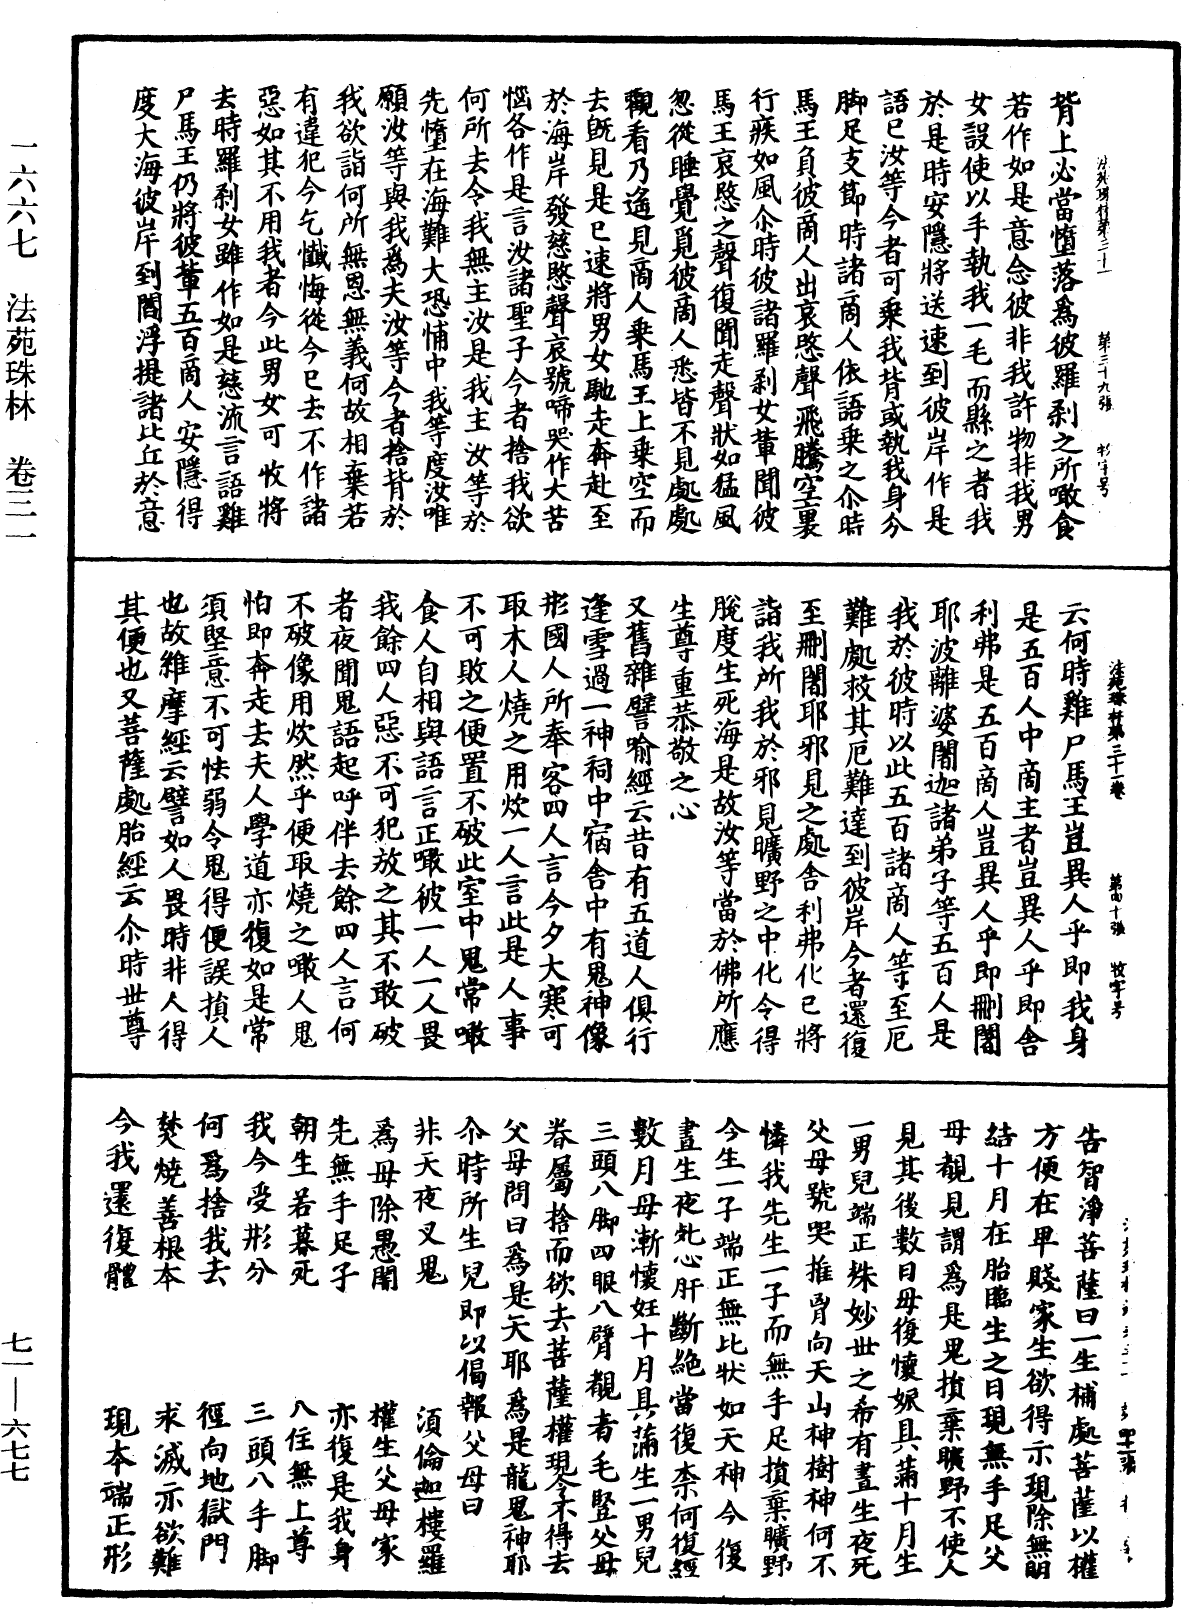 一六六七　法苑珠林　卷三一
七一—六七七
背上必當墮落為彼羅剎之所噉食
若作如是意念彼非我許物非我男
女設使以手執我一毛而懸之者我
於是時安隱將送速到彼岸作是
語已汝等今者可乘我背或執我身分
腳足支節時諸商人依語乘之尒時
馬王負彼商人出哀愍聲飛騰空裏
行疾如風尒時彼諸羅剎女輩聞彼
馬王哀愍之聲復聞走聲狀如猛風
忽從睡覺覓彼商人悉皆不見處處
觀看乃遙見商人乘馬王上乘空而
去既見是已速將男女馳走奔赴至
於海岸發慈愍聲哀號啼哭作大苦
惱各作是言汝諸聖子今者捨我欲
何所去令我無主汝是我主汝等於
先墮在海難大恐怖中我等度汝唯
願汝等與我為夫汝等今者捨背於
我欲詣何所無恩無義何故相棄若
有違犯今乞懺悔從今已去不作諸
惡如其不用我者今此男女可收將
去時羅剎女雖作如是慈流言語雞
尸馬王仍將彼輩五百商人安隱得
度大海彼岸到閻浮提諸比丘於意
法苑珠林第三十一卷　第四十張　牧字号
云何時雞尸馬王豈異人乎即我身
是五百人中商主者豈異人乎即舍
利弗是五百商人豈異人乎即刪闍
耶波離婆闍迦諸弟子等五百人是
我於彼時以此五百諸商人等至厄
難處救其厄難達到彼岸今者還復
至刪闍耶邪見之處舍利弗化已將
詣我所我於邪見曠野之中化令得
脫度生死海是故汝等當於佛所應
生尊重恭敬之心
又舊雜譬喻經云昔有五道人俱行
逢雪過一神祠中宿舍中有鬼神像
形國人所奉客四人言今夕大寒可
取木人燒之用炊一人言此是人事
不可敗之便置不破此室中鬼常噉
食人自相與語言正噉彼一人一人畏
我餘四人惡不可犯放之其不敢破
者夜聞鬼語起呼伴去餘四人言何
不破像用炊然乎便取燒之噉人鬼
怕即奔走去夫人學道亦復如是常
須堅意不可怯弱令鬼得便誤損人
也故維摩經云譬如人畏時非人得
其便也又菩薩處胎經云尒時世尊
告智淨菩薩曰一生補處菩薩以權
方便在卑賤家生欲得示現除無明
結十月在胎臨生之日現無手足父
母覩見謂為是鬼捐棄曠野不使人
見其後數日母復懷妊具滿十月生
一男兒端正殊妙世之希有晝生夜死
父母號哭推胷向天山神樹神何不
憐我先生一子而無手足捐棄曠野
今生一子端正無比狀如天神今復
晝生夜死心肝斷絕當復柰何復經
數月母漸懷妊十月具滿生一男兒
三頭八腳四眼八臂覩者毛豎父母
眷屬捨而欲去菩薩權現令不得去
父母問曰為是天耶為是龍鬼神耶
尒時所生兒即以偈報父母曰
非天夜叉鬼　須倫迦樓羅
為母除愚闇　權生父母家
先無手足子　亦復是我身
朝生若暮死　八住無上尊
我今受形分　三頭八手腳
何為捨我去　徑向地獄門
焚燒善根本　求滅亦欲難
今我還復體　現本端正形